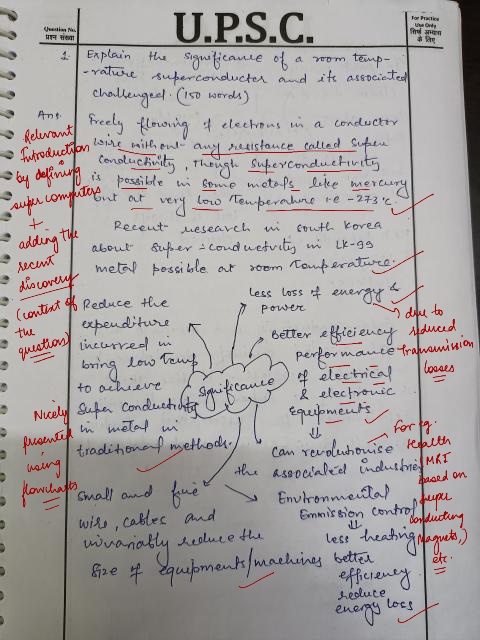 U.P.S.C.
Question No.
प्रश्न संख्या
For Practice
Use Only
सिर्फ अभ्यास
के लिए
1. Explain the significance of a room temp-
-rature superconductor and its associated
challenged. (150 words)
Ans.
Freely flowing of electrons in a conductor
wire without any resistance called super
conductivity, Though superconductivity
is possible in some metals like mercury
but at very low temperature i.e -273°C
Recent research in south Korea
about super-conductivity in LK-99
metal possible at room temperature.
Relevant
Introduction
by defining
super computers
+
adding the
recent
discovery
(context of
the
question)
Significance
less loss of energy &
power
due to
reduced
transmission
losses
Better efficiency
performance
of electrical
& electronic
equipments
⇓
can revolutionise
the associated industries
For eg.
Health
(MRI
based on
super
conducting
Magnets,)
etc.
Environmental
Emmission control
⇓
less heating
better
efficiency
reduce
energy loss
Reduce the
expenditure
incurred in
bring low temp
to achieve
Super conductivity
in metal in
traditional methods.
Nicely
presented
using
flowcharts
Small and fine
wire, cables and
invariably reduce the
size of equipments/machines